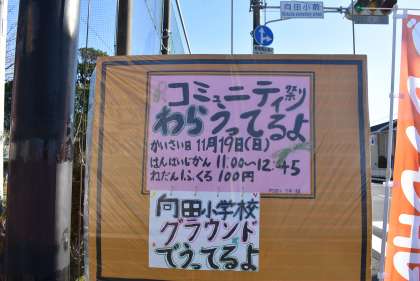 向田小前
コミュニティ祭り
わらうってるよ
かいさい日 11月19日(日)
はんばいじかん 11:00~12:45
ねだん1ふくろ 100円
向田小学校
グラウンド
でうってるよ